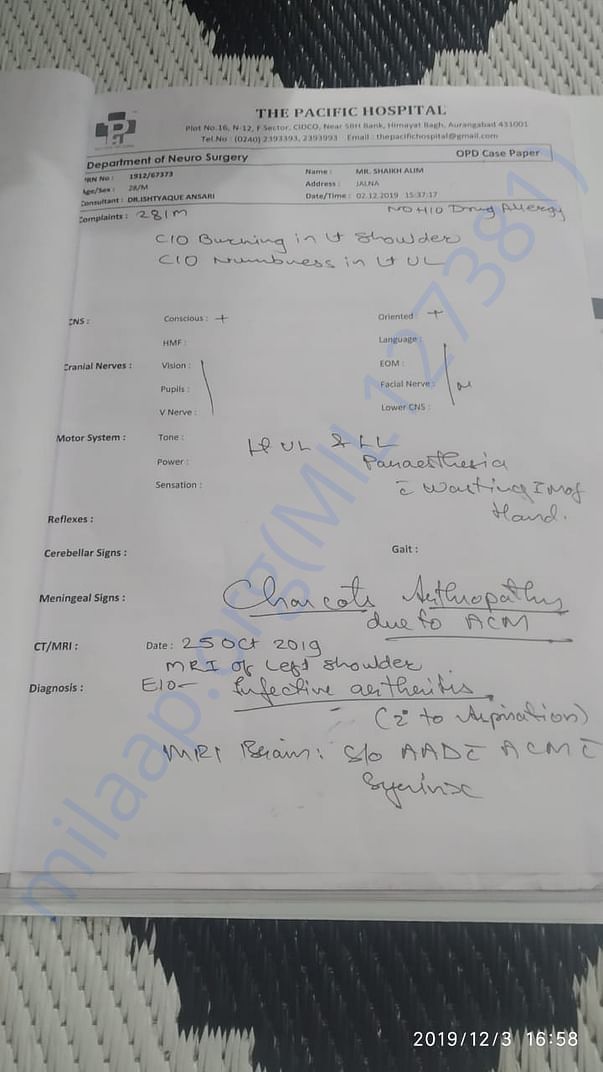 THE PACIFIC HOSPITAL
Plot No.16, N-12, F Sector, CIDCO, Near SBH Bank, Himayat Bagh, Aurangabad 431001
Tel.No : (0240) 2393393, 2393993 Email : thepacifichospital@gmail.com
Department of Neuro Surgery OPD Case Paper
PRN No : 1912/67373 Name : MR. SHAIKH ALIM
Age/Sex : 28/M Address : JALNA
Consultant : DR.ISHTYAQUE ANSARI Date/Time : 02.12.2019 15:37:17
Complaints : 28/M NO H/O Drug Allergy
C/O Burning in Lt Shoulder
C/O Numbness in Lt UL
CNS : Conscious : + Oriented : +
HMF : Language :
Cranial Nerves : Vision : EOM :
Pupils : Facial Nerve :
V Nerve : Lower CNS :
Motor System : Tone : UL & LL
Power : Paraesthesia
Sensation : c̄ Wasting of
Hand.
Reflexes :
Cerebellar Signs : Gait :
Meningeal Signs : Charcots Arthropathy
due to ACM
CT/MRI : Date : 25 Oct 2019
MRI of Left shoulder
Diagnosis : E/O - Infective aertheritis
(2° to Aspiration)
MRI Brain : S/O AAD c̄ ACM c̄
Syrinx
milaap.org(MIL127381)
2019/12/3 16:58